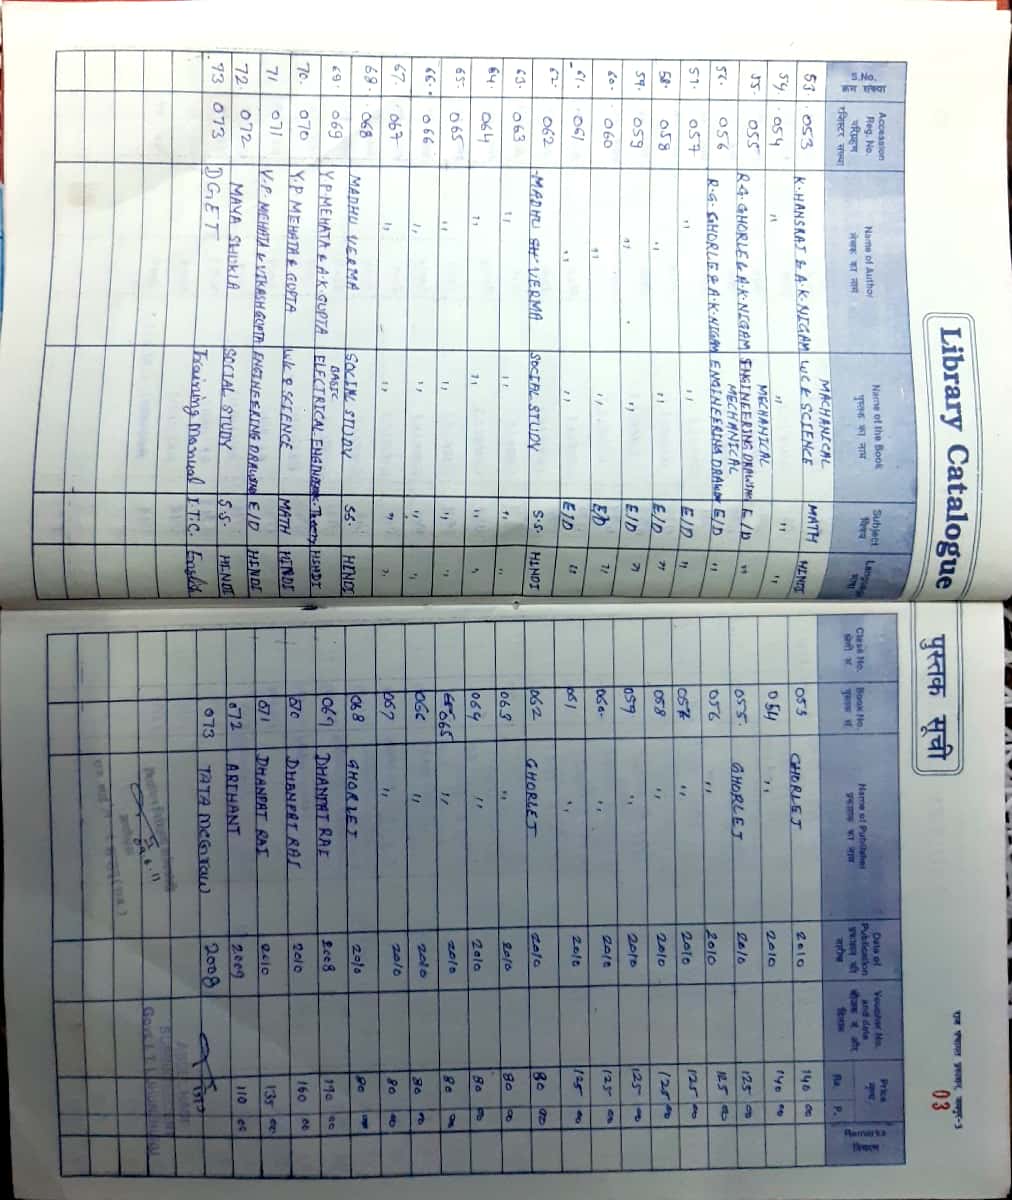 Library Catalogue पुस्तक सूची
03
S.No. क्रम संख्या | Accession Reg. No. परिग्रहण रजिस्टर संख्या | Name of Author लेखक का नाम | Name of the Book पुस्तक का नाम | Subject विषय | Language भाषा | Class No. श्रेणी सं. | Book No. पुस्तक सं. | Name of Publisher प्रकाशक का नाम | Date of Publication प्रकाशन की तारीख | Voucher No. and date वीजक सं. और दिनांक | Price मूल्य Rs. P. | Remarks विवरण
53. 053 K. HANSRAJ & A.K. NIGAM MACHANICAL W.C & SCIENCE MATH HINDI 053 GHORLEJ 2010 140 00
54. 054 " " " " 054 " 2010 140 00
55. 055 R.G. GHORLE & A.K. NIGAM MECHANICAL ENGINEERING DRAWING E/D " 055. GHORLEJ 2010 125 00
56. 056 R.G. GHORLE & A.K. NIGAM MECHANICAL ENGINEERING DRAWIN E/D " 056 " 2010 125 00
57. 057 " " E/D " 057 " 2010 125 00
58. 058 " " E/D " 058 " 2010 125 00
59. 059 " " E/D " 059 " 2010 125 00
60. 060 " " E/D " 060. " 2010 125 00
61. 061 " " E/D " 061 " 2010 125 00
62. 062 MADHU VERMA SOCIAL STUDY S.S. HINDI 062 GHORLEJ 2010 80 00
63. 063 " " " " 063 " 2010 80 00
64. 064 " " " " 064 " 2010 80 00
65. 065 " " " " 065 " 2010 80 00
66. 066 " " " " 066 " 2010 80 00
67. 067 " " " " 067 " 2010 80 00
68. 068 MADHU VERMA SOCIAL STUDY SS. HINDI 068 GHORLEJ 2010 80 00
69. 069 Y.P. MEHATA & A.K GUPTA BASIC ELECTRICAL ENGINEER. Theory HINDI 069 DHANPAT RAI 2008 190 00
70. 070 Y.P. MEHATA & GUPTA W/C & SCIENCE MATH HINDI 070 DHANPAT RAI 2010 160 00
71 071 V.P. MEHATA & VIKASH GUPTA ENGINEERING DRAWING E/D HINDI 071 DHANPAT RAI 2010 135 00
72. 072 MAYA SHUKLA SOCIAL STUDY S.S. HINDI 072 ARIHANT 2009 110 00
73 073 DGET Training Manual I.T.C. English 073 TATA McGraw 2008